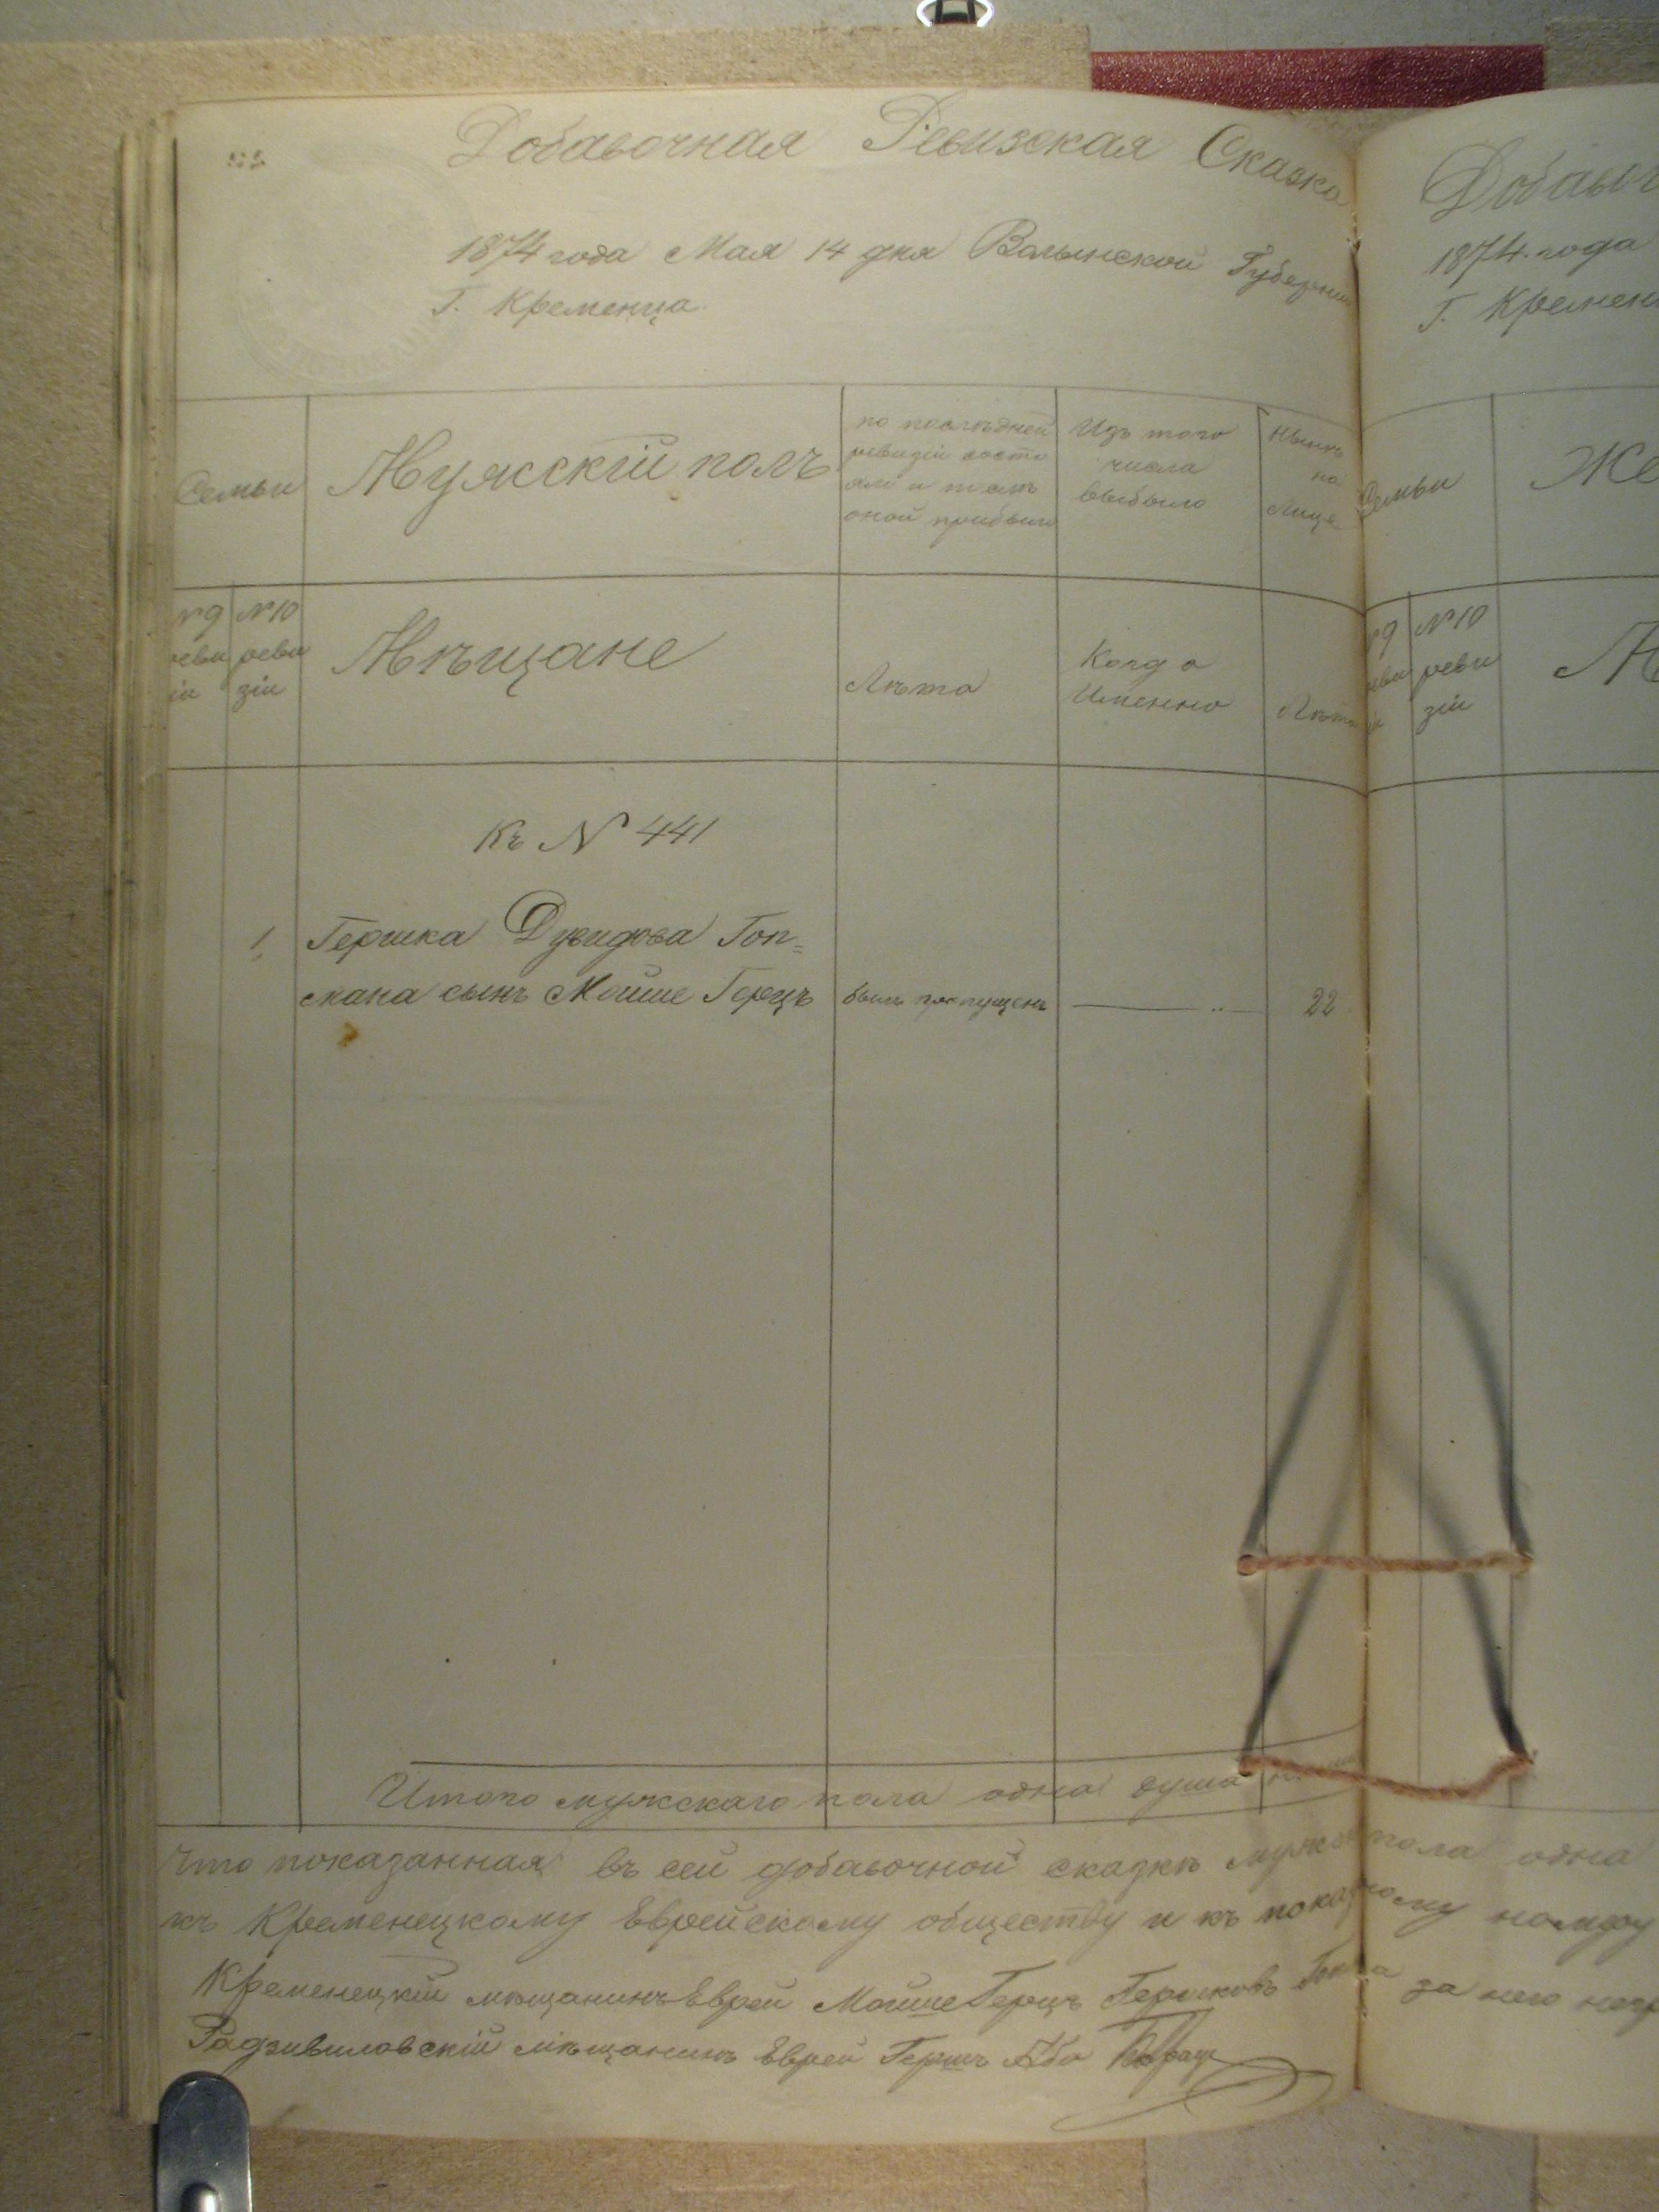 Добавочная Ревизская Сказка
1874 года Мая 14 дня Волынской Губерніи
Г. Кременца.
Семьи
Мужскій полъ
по послѣдней
ревизіи состо
яли и послѣ
оной прибыли
Изъ того
числа
выбыло
Нынѣ
на
Лице
№9
реви
зіи
№10
реви
зіи
Мѣщане
Лѣта
Когда
Именно
Лѣта
Къ № 441
1. Гершка Дувидова Гоп=
мана сынъ Мойше Герцъ былъ пропущенъ 22
Итого мужскаго пола одна душа
Что показанная въ сей добавочной сказкѣ мужск пола одна
къ Кременецкому Еврейскому обществу и къ показ ному номеру
Кременецкій мѣщанинъ Еврей Мойше Герцъ Гершковъ за него негр
Радзивиловскій мѣщанинъ Еврей Гершъ
Добавоч
1874. года
Г. Кремен
Семьи
Же
№9
реви
зіи
№10
реви
зіи
М